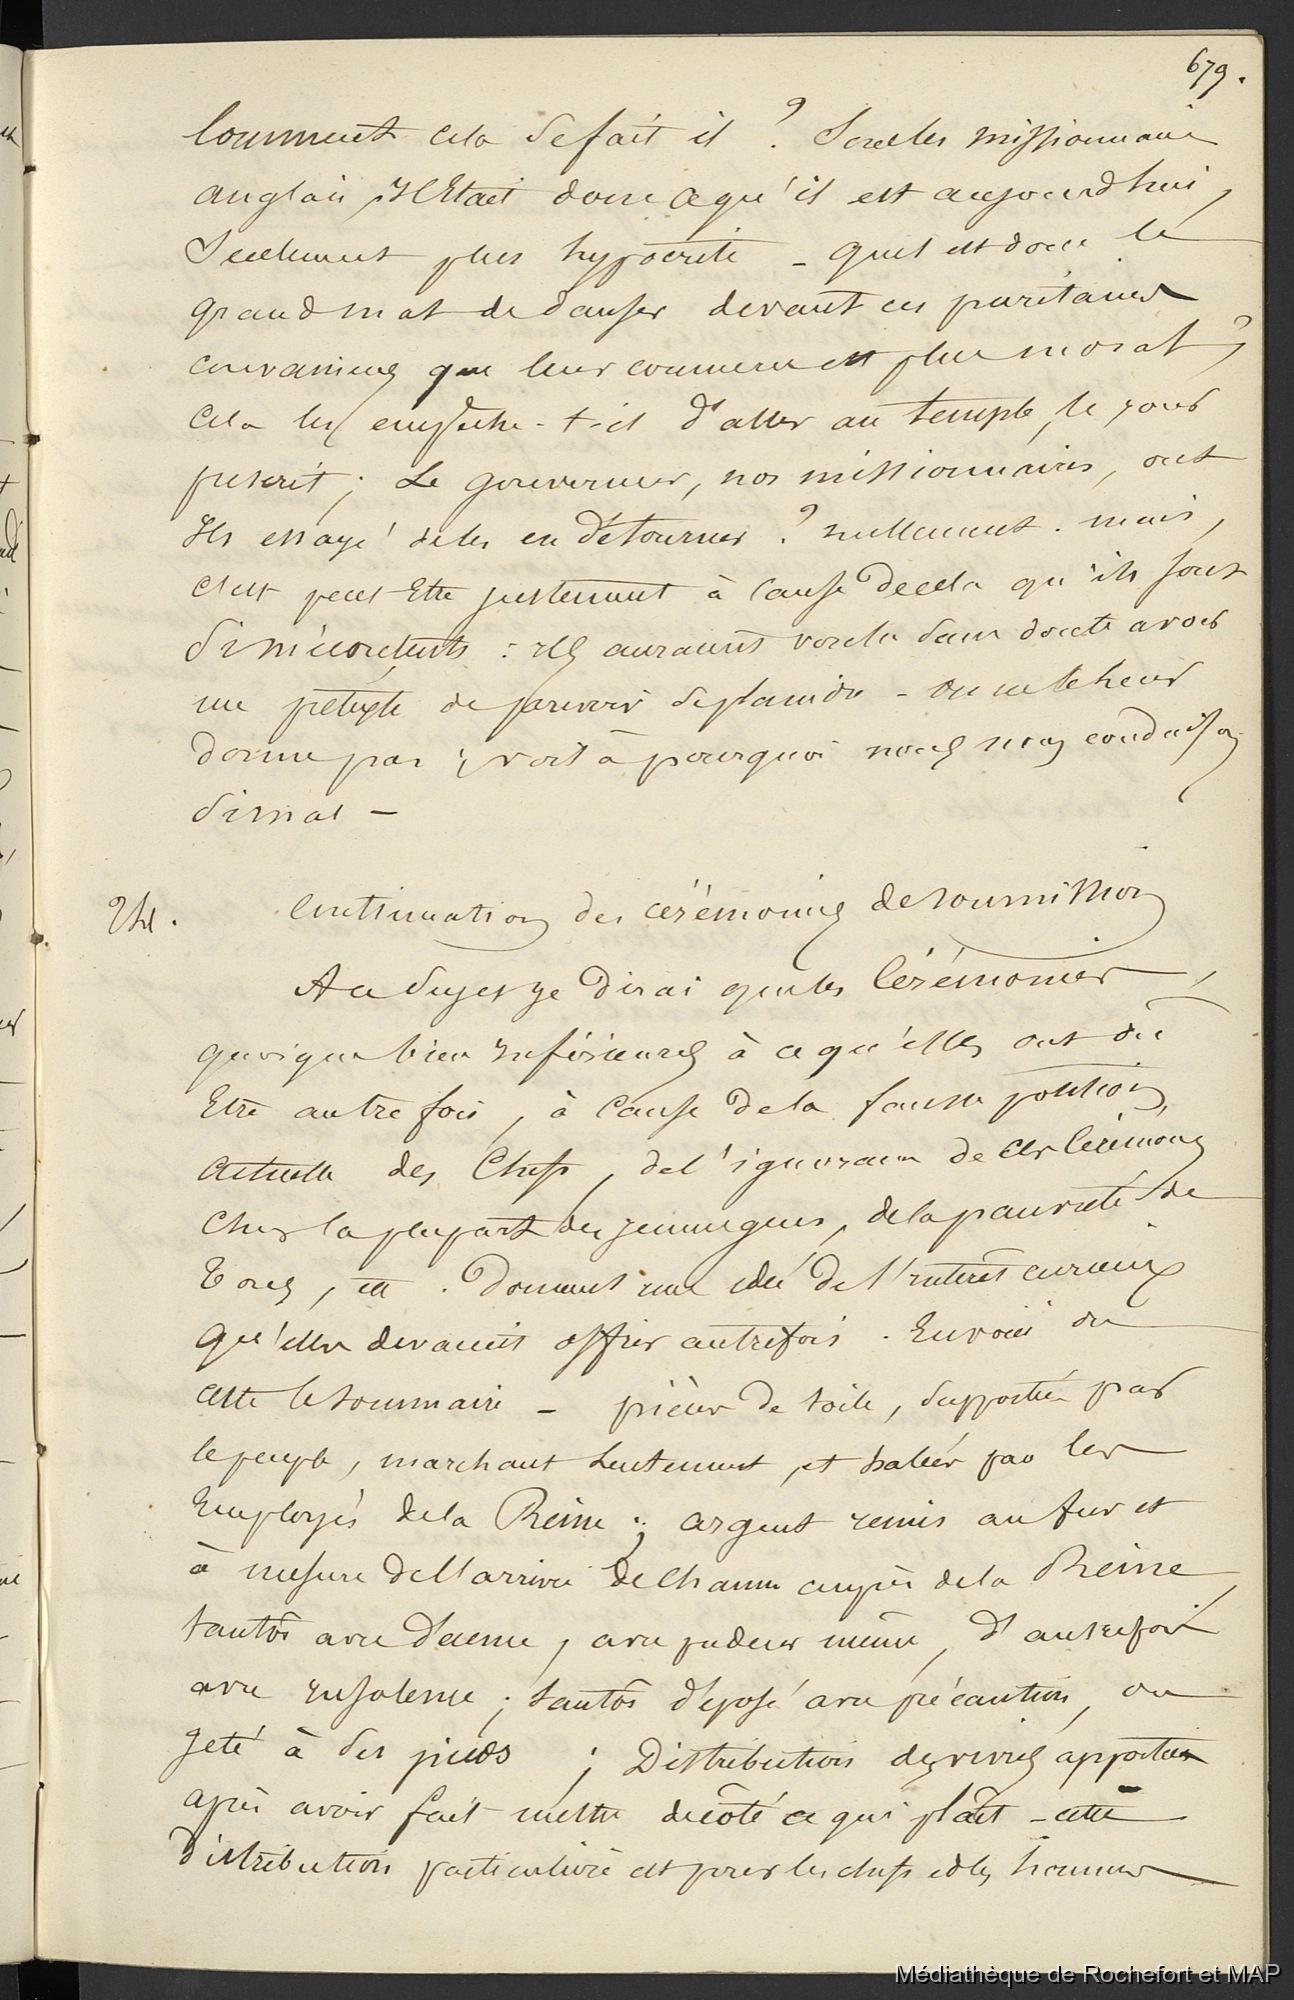 679.
Comment cela se fait il ? Sous les missionnaires
anglais, il était donc ce qu'il est aujourd'hui,
Seulement plus hypocrite - quel est donc le
grand mal de danser devant ces puritains
convaincus que leur commerce est plus moral ?
Cela les empêche-t-il d'aller au temple, le jour
prescrit ; Le gouverneur, nos missionnaires, ont
Ils essayé de les en détourner ? nullement. mais,
c'est peut être justement à cause de cela qu'ils sont
si mécontents : ils auraient voulu sans doute avoir
un prétexte de pouvoir se plaindre - on ne le leur
donne pas ; voilà pourquoi nous nous conduisons
si mal -
24. Continuation des cérémonies de soumission
Au sujet je dirai que les Cérémonies,
quoique bien inférieures à ce qu'elles ont dû
Etre autrefois, à cause de la fausse position
actuelle des Chefs, de l'ignorance de ces Cérémonies
chez la plupart des jeunes gens, de la pauvreté de
tous, etc. Donnent une idée de l'intérêt curieux
qu'elles devaient offrir autrefois. En voici ou
cette le sommaire - pièces de toile, supportées par
le peuple, marchant lentement, et halées par les
Employés de la Reine ; argent remis au fur et
à mesure de l'arrivée de chacun auprès de la Reine,
tantôt avec décence, avec pudeur même, d'autrefois
avec insolence ; tantôt déposé avec précaution, ou
jeté à ses pieds ; Distribution des vivres apportés
après avoir fait mettre de côté ce qui plaît - cette
distribution particulière est pour les chefs et les hommes
Médiathèque de Rochefort et MAP